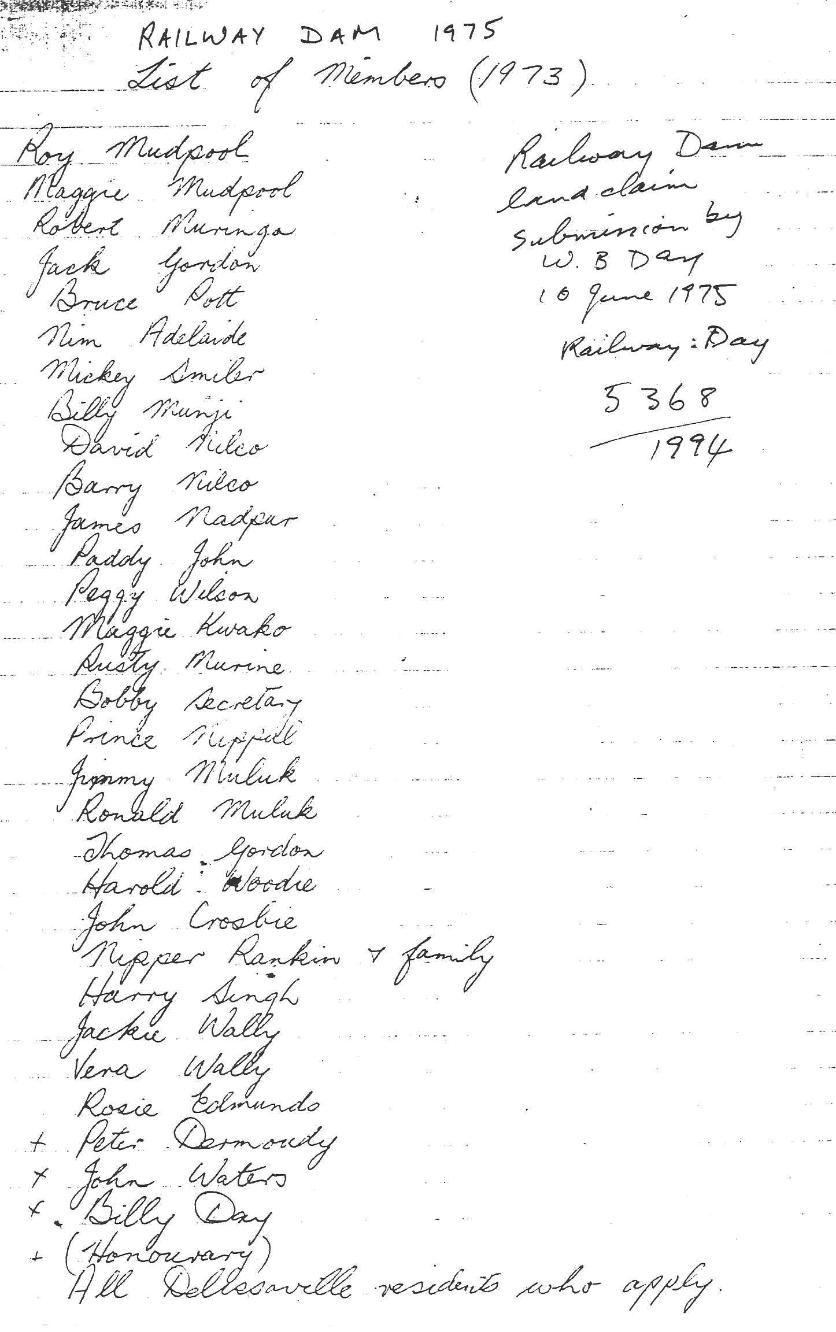 RAILWAY DAM 1975
List of Members (1973)
Roy Mudpool
Maggie Mudpool
Robert Muringa
Jack Gordon
Bruce Pott
Nim Adelaide
Mickey Smiler
Billy Munji
David Nilco
Barry Nilco
James Nadpur
Paddy John
Peggy Wilson
Maggie Kwako
Rusty Murine
Bobby Secretary
Prince Nippill
Jimmy Muluk
Ronald Muluk
Thomas Gordon
Harold Woodie
John Crosbie
Nipper Rankin + family
Harry Singh
Jackie Wally
Vera Wally
Rosie Edmunds
+ Peter Dermoudy
x John Waters
x Billy Day
+ (Honourary)
All Delissaville residents who apply.
Railway Dam
land claim
submission by
W. B Day
10 June 1975
Railway : Day
5368
1994